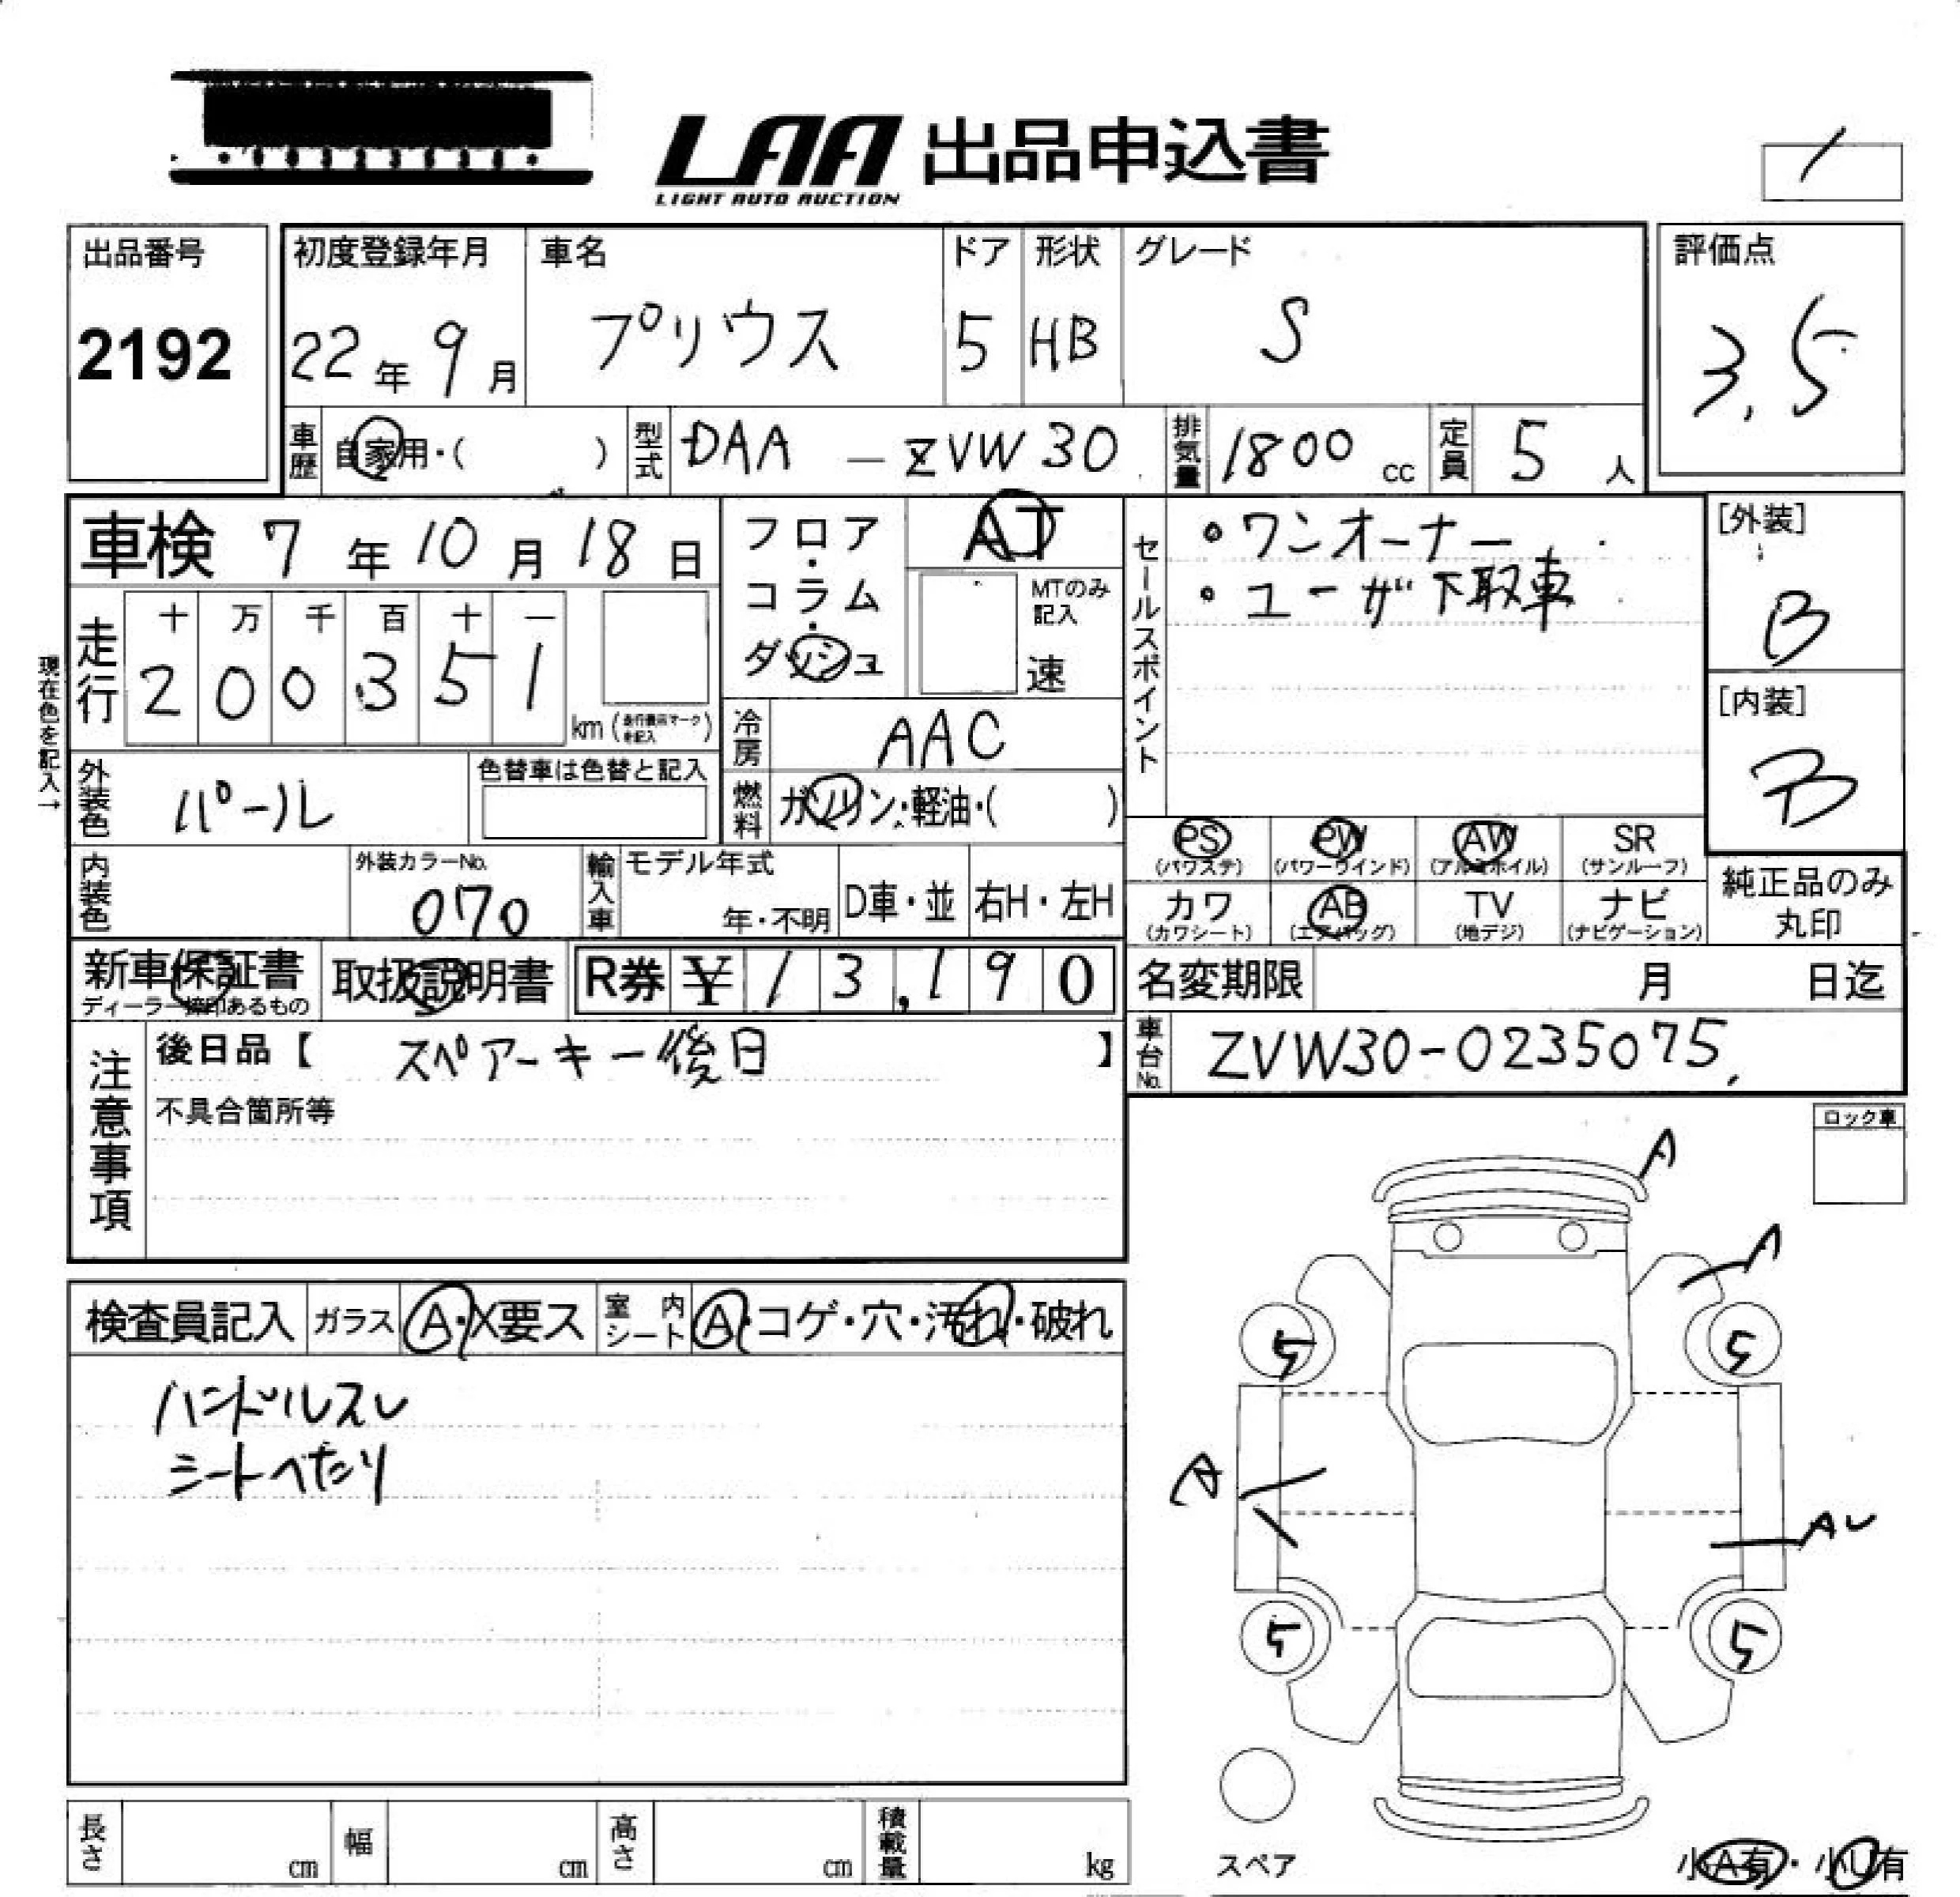 LAA 出品申込書
LIGHT AUTO AUCTION
出品番号
2192
初度登録年月
22年9月
車名
プリウス
ドア
5
形状
HB
グレード
S
評価点
3.5
車歴
自家用・( )
型式
DAA — ZVW30
排気量
1800 cc
定員
5人
車検 7年10月18日
フロア・コラム・ダッシュ
AT
MTのみ記入
速
セールスポイント
・ワンオーナー
・ユーザ下取車
[外装]
B
[内装]
B
現在色を記入→
走行
十 万 千 百 十 一
2 0 0 3 5 1
km (走行表示マークを記入)
冷房
AAC
外装色
パール
色替車は色替と記入
燃料
ガソリン・軽油・( )
PS (パワステ)
PW (パワーウインド)
AW (アルミホイル)
SR (サンルーフ)
内装色
外装カラーNo.
070
輸入車
モデル年式
年・不明
D車・並
右H・左H
カワ (カワシート)
AB (エアバッグ)
TV (地デジ)
ナビ (ナビゲーション)
純正品のみ
丸印
新車保証書
ディーラー捺印あるもの
取扱説明書
R券 ¥ 13,190
名変期限 月 日迄
注意事項
後日品【 スペアーキー後日 】
不具合箇所等
車台No.
ZVW30-0235075
ロック車
検査員記入
ガラス
A・X要ス
室内シート
A・コゲ・穴・汚れ・破れ
ハンドルスレ
シートへたり
A
A
5
5
A
AU
5
5
スペア
小A有・小U有
長さ cm
幅 cm
高さ cm
積載量 kg